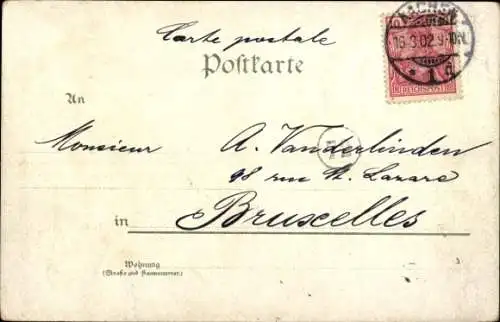 Carte postale
Postkarte
AACHEN
16.3.02.9-10N.
* 1 d
REICHSPOST
An
Monsieur A. Vanderlinden
98 rue St. Lazare
in Bruxelles
Wohnung
(Straße und Hausnummer.)